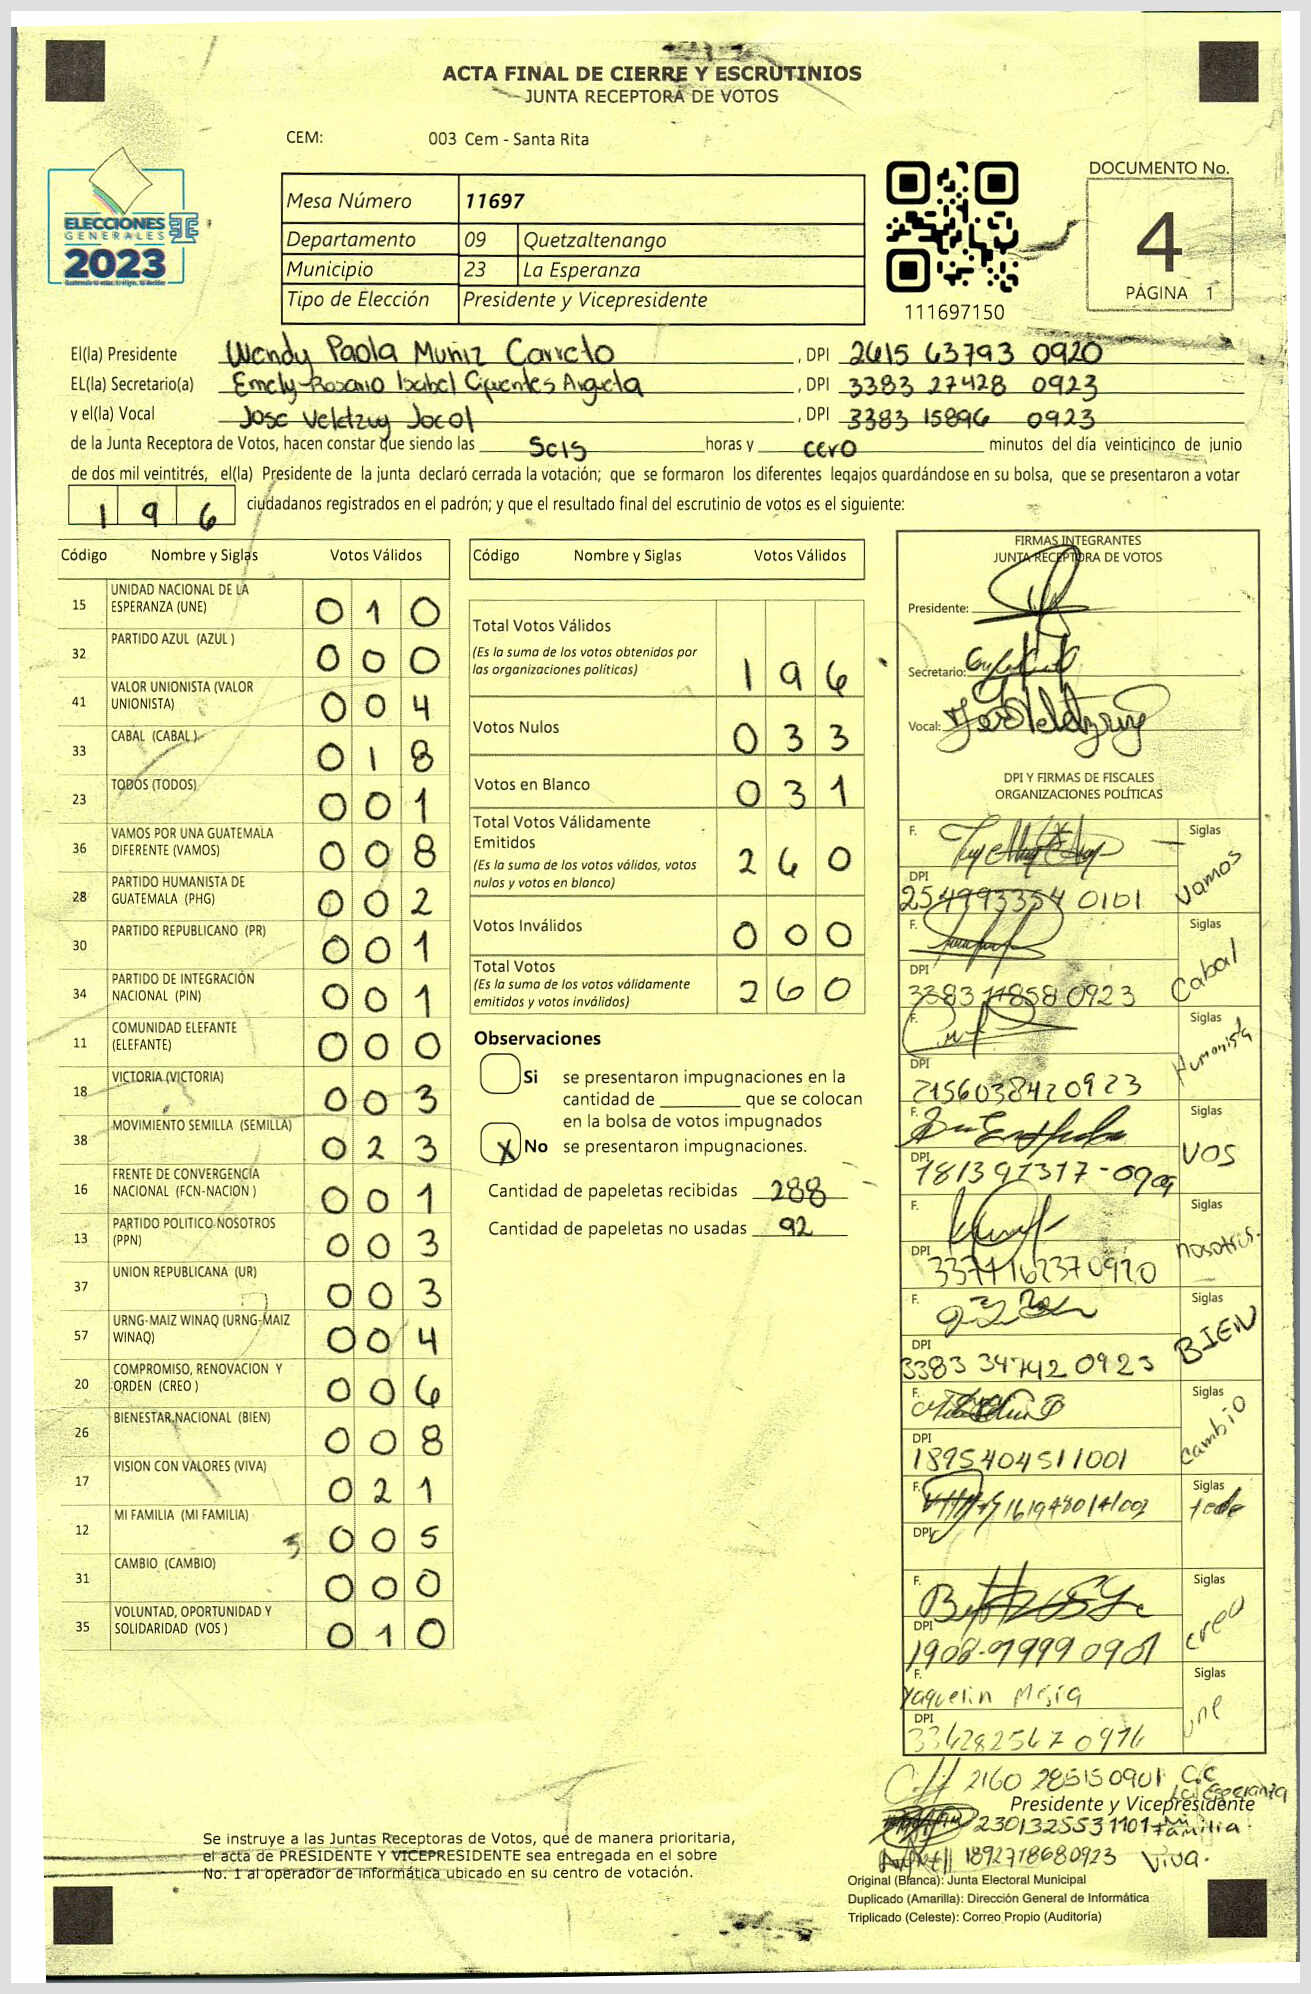 ACTA FINAL DE CIERRE Y ESCRUTINIOS
JUNTA RECEPTORA DE VOTOS
CEM: 003 Cem - Santa Rita
ELECCIONES
GENERALES
2023
Mesa Número 11697
Departamento 09 Quetzaltenango
Municipio 23 La Esperanza
Tipo de Elección Presidente y Vicepresidente
111697150
DOCUMENTO No.
4
PÁGINA 1
El(la) Presidente Wendy Paola Muñiz Carreto , DPI 2615 63793 0920
EL(la) Secretario(a) Emely Rosario Isabel Cifuentes Argueta , DPI 3383 27428 0923
y el(la) Vocal Jose Veletzuy Jocol , DPI 3383 15896 0923
de la Junta Receptora de Votos, hacen constar que siendo las Seis horas y cero minutos del día veinticinco de junio
de dos mil veintitrés, el(la) Presidente de la junta declaró cerrada la votación; que se formaron los diferentes legajos guardándose en su bolsa, que se presentaron a votar
196 ciudadanos registrados en el padrón; y que el resultado final del escrutinio de votos es el siguiente:
Código Nombre y Siglas Votos Válidos
15 UNIDAD NACIONAL DE LA ESPERANZA (UNE) 010
32 PARTIDO AZUL (AZUL ) 000
41 VALOR UNIONISTA (VALOR UNIONISTA) 004
33 CABAL (CABAL ) 018
23 TODOS (TODOS) 001
36 VAMOS POR UNA GUATEMALA DIFERENTE (VAMOS) 008
28 PARTIDO HUMANISTA DE GUATEMALA (PHG) 002
30 PARTIDO REPUBLICANO (PR) 001
34 PARTIDO DE INTEGRACIÓN NACIONAL (PIN) 001
11 COMUNIDAD ELEFANTE (ELEFANTE) 000
18 VICTORIA (VICTORIA) 003
38 MOVIMIENTO SEMILLA (SEMILLA) 023
16 FRENTE DE CONVERGENCIA NACIONAL (FCN-NACION ) 001
13 PARTIDO POLITICO NOSOTROS (PPN) 003
37 UNION REPUBLICANA (UR) 003
57 URNG-MAIZ WINAQ (URNG-MAIZ WINAQ) 004
20 COMPROMISO, RENOVACION Y ORDEN (CREO ) 006
26 BIENESTAR NACIONAL (BIEN) 008
17 VISION CON VALORES (VIVA) 021
12 MI FAMILIA (MI FAMILIA) 005
31 CAMBIO (CAMBIO) 000
35 VOLUNTAD, OPORTUNIDAD Y SOLIDARIDAD (VOS ) 010
Código Nombre y Siglas Votos Válidos
Total Votos Válidos
(Es la suma de los votos obtenidos por
las organizaciones políticas) 196
Votos Nulos 033
Votos en Blanco 031
Total Votos Válidamente
Emitidos
(Es la suma de los votos válidos, votos
nulos y votos en blanco) 260
Votos Inválidos 000
Total Votos
(Es la suma de los votos válidamente
emitidos y votos inválidos) 260
Observaciones
Si se presentaron impugnaciones en la
cantidad de ________ que se colocan
en la bolsa de votos impugnados
X No se presentaron impugnaciones.
Cantidad de papeletas recibidas 288
Cantidad de papeletas no usadas 92
FIRMAS INTEGRANTES
JUNTA RECEPTORA DE VOTOS
Presidente:
Secretario:
Vocal:
DPI Y FIRMAS DE FISCALES
ORGANIZACIONES POLÍTICAS
F. Siglas Vamos
DPI 254993354 0101
F. Siglas Cabal
DPI 3383 11858 0923
F. Siglas Humanista
DPI 2156038420923
F. Siglas VOS
DPI 181391317-0909
F. Siglas nosotros.
DPI 3371162370920
F. Siglas BIEN
DPI 3383 34742 0923
F. Siglas cambio
DPI 1895404511001
F. Siglas
DPI
F. Siglas creo
DPI 1908-99990901
F. Yaquelin Mejía Siglas une
DPI
2160 285150901 C.C La Esperanza
Presidente y Vicepresidente
2301325531101 Mi Familia.
1892718680923 Viva.
Se instruye a las Juntas Receptoras de Votos, que de manera prioritaria,
el acta de PRESIDENTE Y VICEPRESIDENTE sea entregada en el sobre
No. 1 al operador de informática ubicado en su centro de votación.
Original (Blanca): Junta Electoral Municipal
Duplicado (Amarilla): Dirección General de Informática
Triplicado (Celeste): Correo Propio (Auditoría)